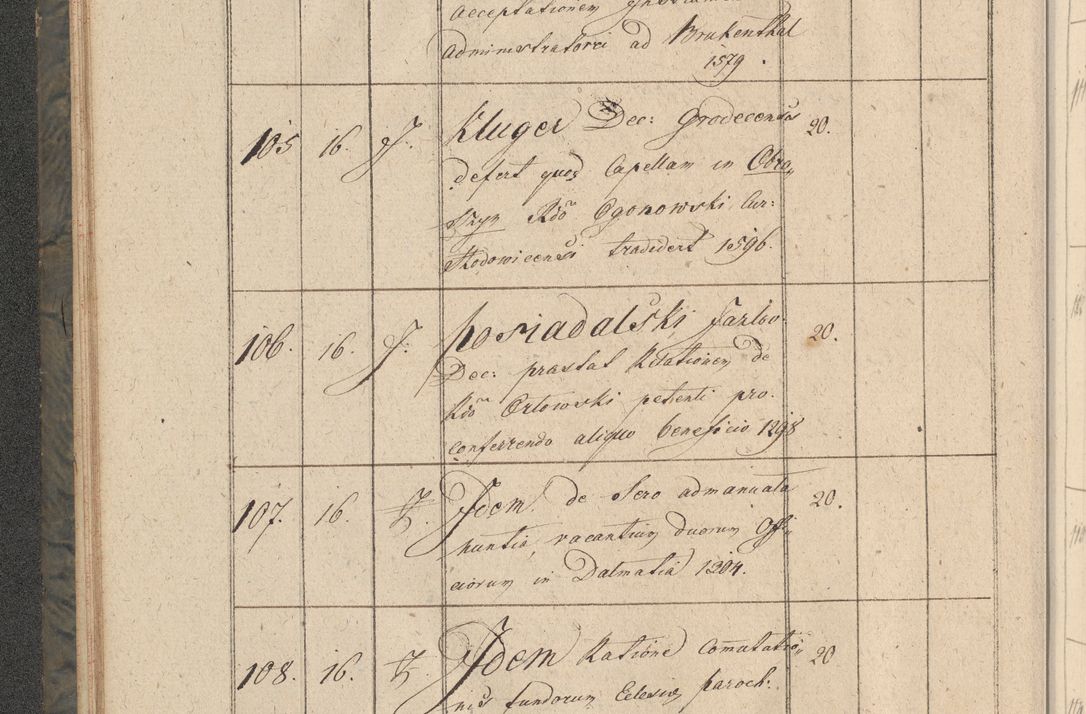 acceptationem
administratorei ad Brukenthal
1579.
105 16. J. Kluger Dec: Grodecensis 20.
defert quod Capellam in Obro„
szyn Rdo Ogonowski Cur:
Rodowicensi tradidert 1596.
106. 16. J. Posiadalski Jarlov: 20.
Dec: prastat Relationem de
Rdo Orlowski petenti pro
conferrendo aliquo beneficio 1298
107. 16. Idem de sero admanuata 20.
nuntia, vacantium duorum Offi„
ciorum in Dalmatia 1204.
108. 16. Idem Ratione Comutatio„ 20
nis fundorum Eclesiæ paroch: